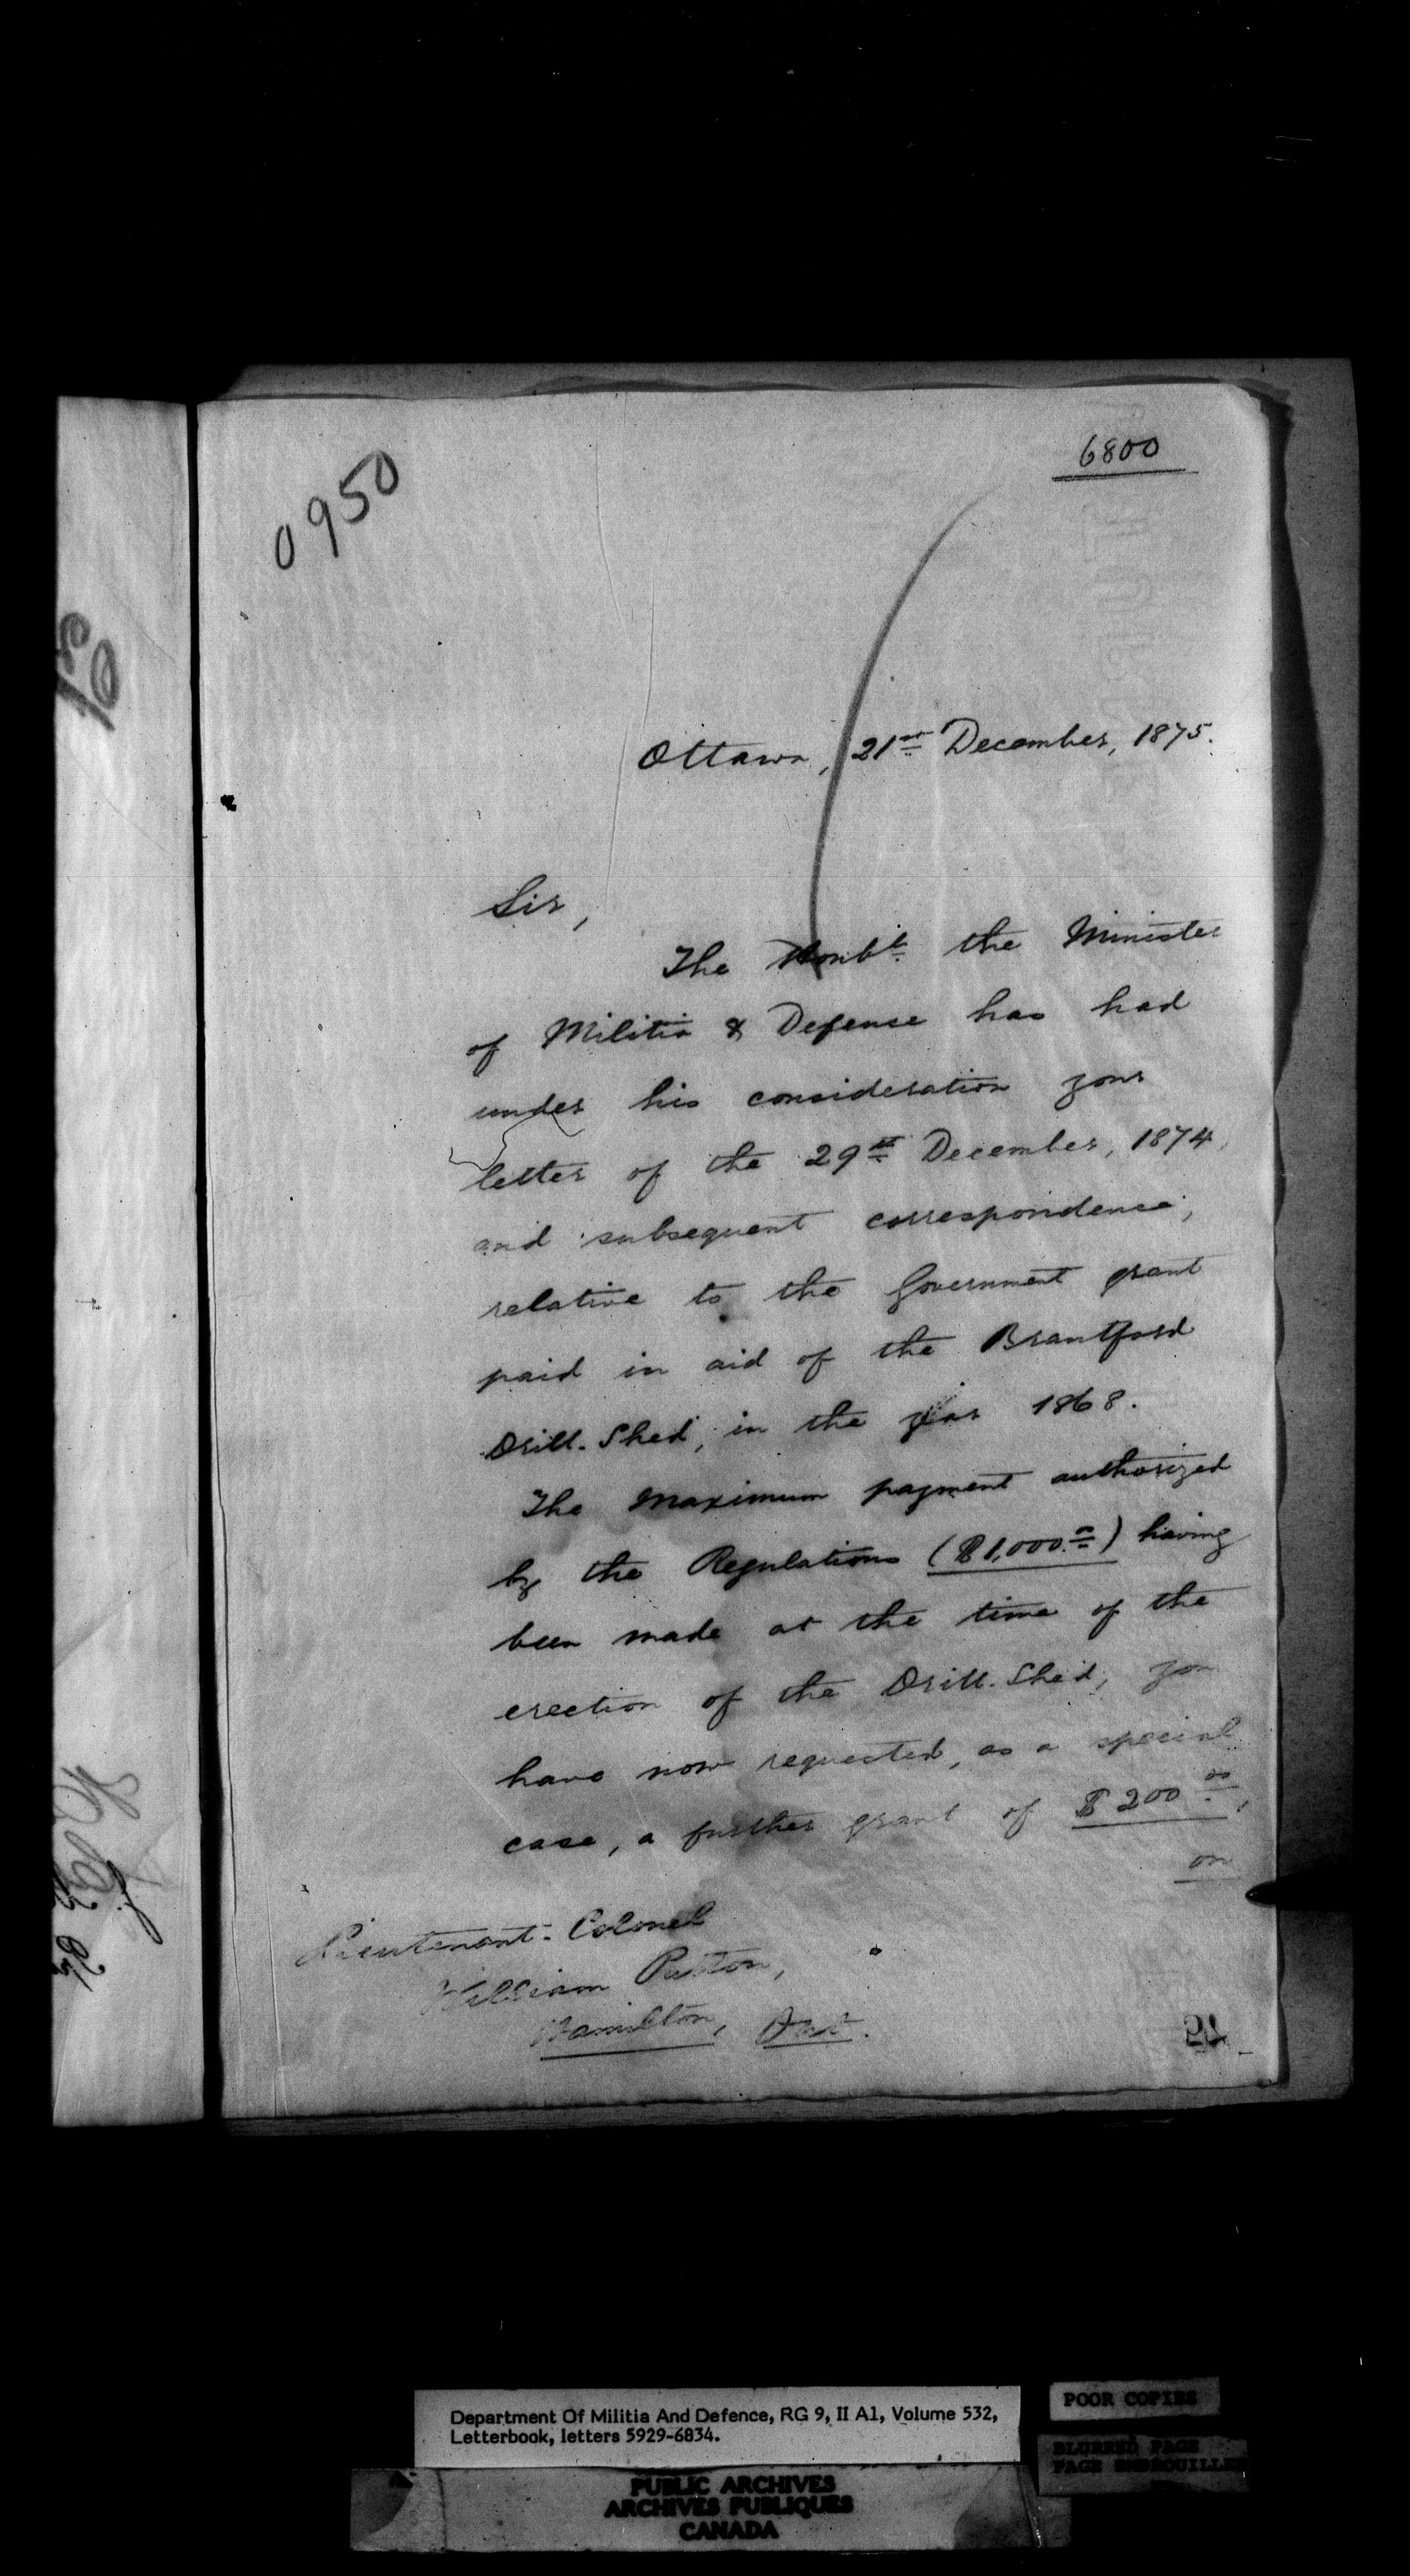 6800
0950
Ottawa, 21st December, 1875.
Sir,
The Honble the Minister
of Militia & Defense has had
under his consideration your
letter of the 29th December, 1874,
and subsequent correspondence,
relative to the Government grant
paid in aid of the Brantford
Drill-Shed, in the year 1868.
The Maximum payment authorized
by the Regulations ($1,000.00) having
been made at the time of the
erection of the Drill-Shed, you
have now requested, as a special
case, a further grant of $200.00,
on
Lieutenant-Colonel
William Patton,
Hamilton, Ont.
Department Of Militia And Defence, RG 9, II A1, Volume 532,
Letterbook, letters 5929-6834.
POOR COPIES
BLURRED PAGE
PAGE EMBROUILLEE
PUBLIC ARCHIVES
ARCHIVES PUBLIQUES
CANADA